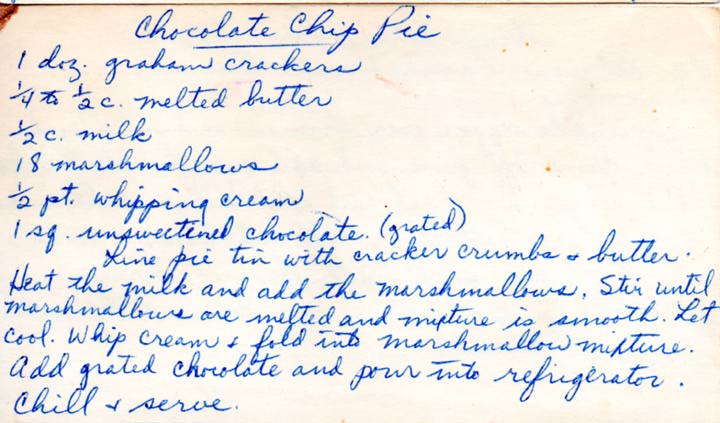 Chocolate Chip Pie
1 doz. graham crackers
1/4 to 1/2 c. melted butter
1/2 c. milk
18 marshmallows
1/2 pt. whipping cream
1 sq. unsweetened chocolate. (grated)
Line pie tin with cracker crumbs & butter.
Heat the milk and add the marshmallows. Stir until
marshmallows are melted and mixture is smooth. Let
cool. Whip cream & fold into marshmallow mixture.
Add grated chocolate and pour into refrigerator.
Chill & serve.